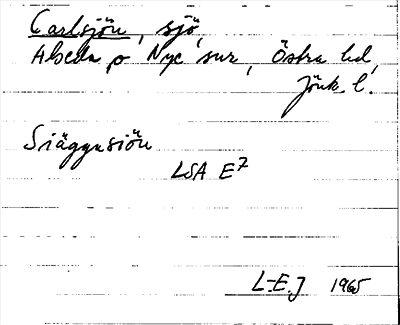 Carlsjön, sjö,
Alseda o Nye snr, Östra hd,
Jönk. l.
Siäggnsiön
LSA E7
L-E.J 1965